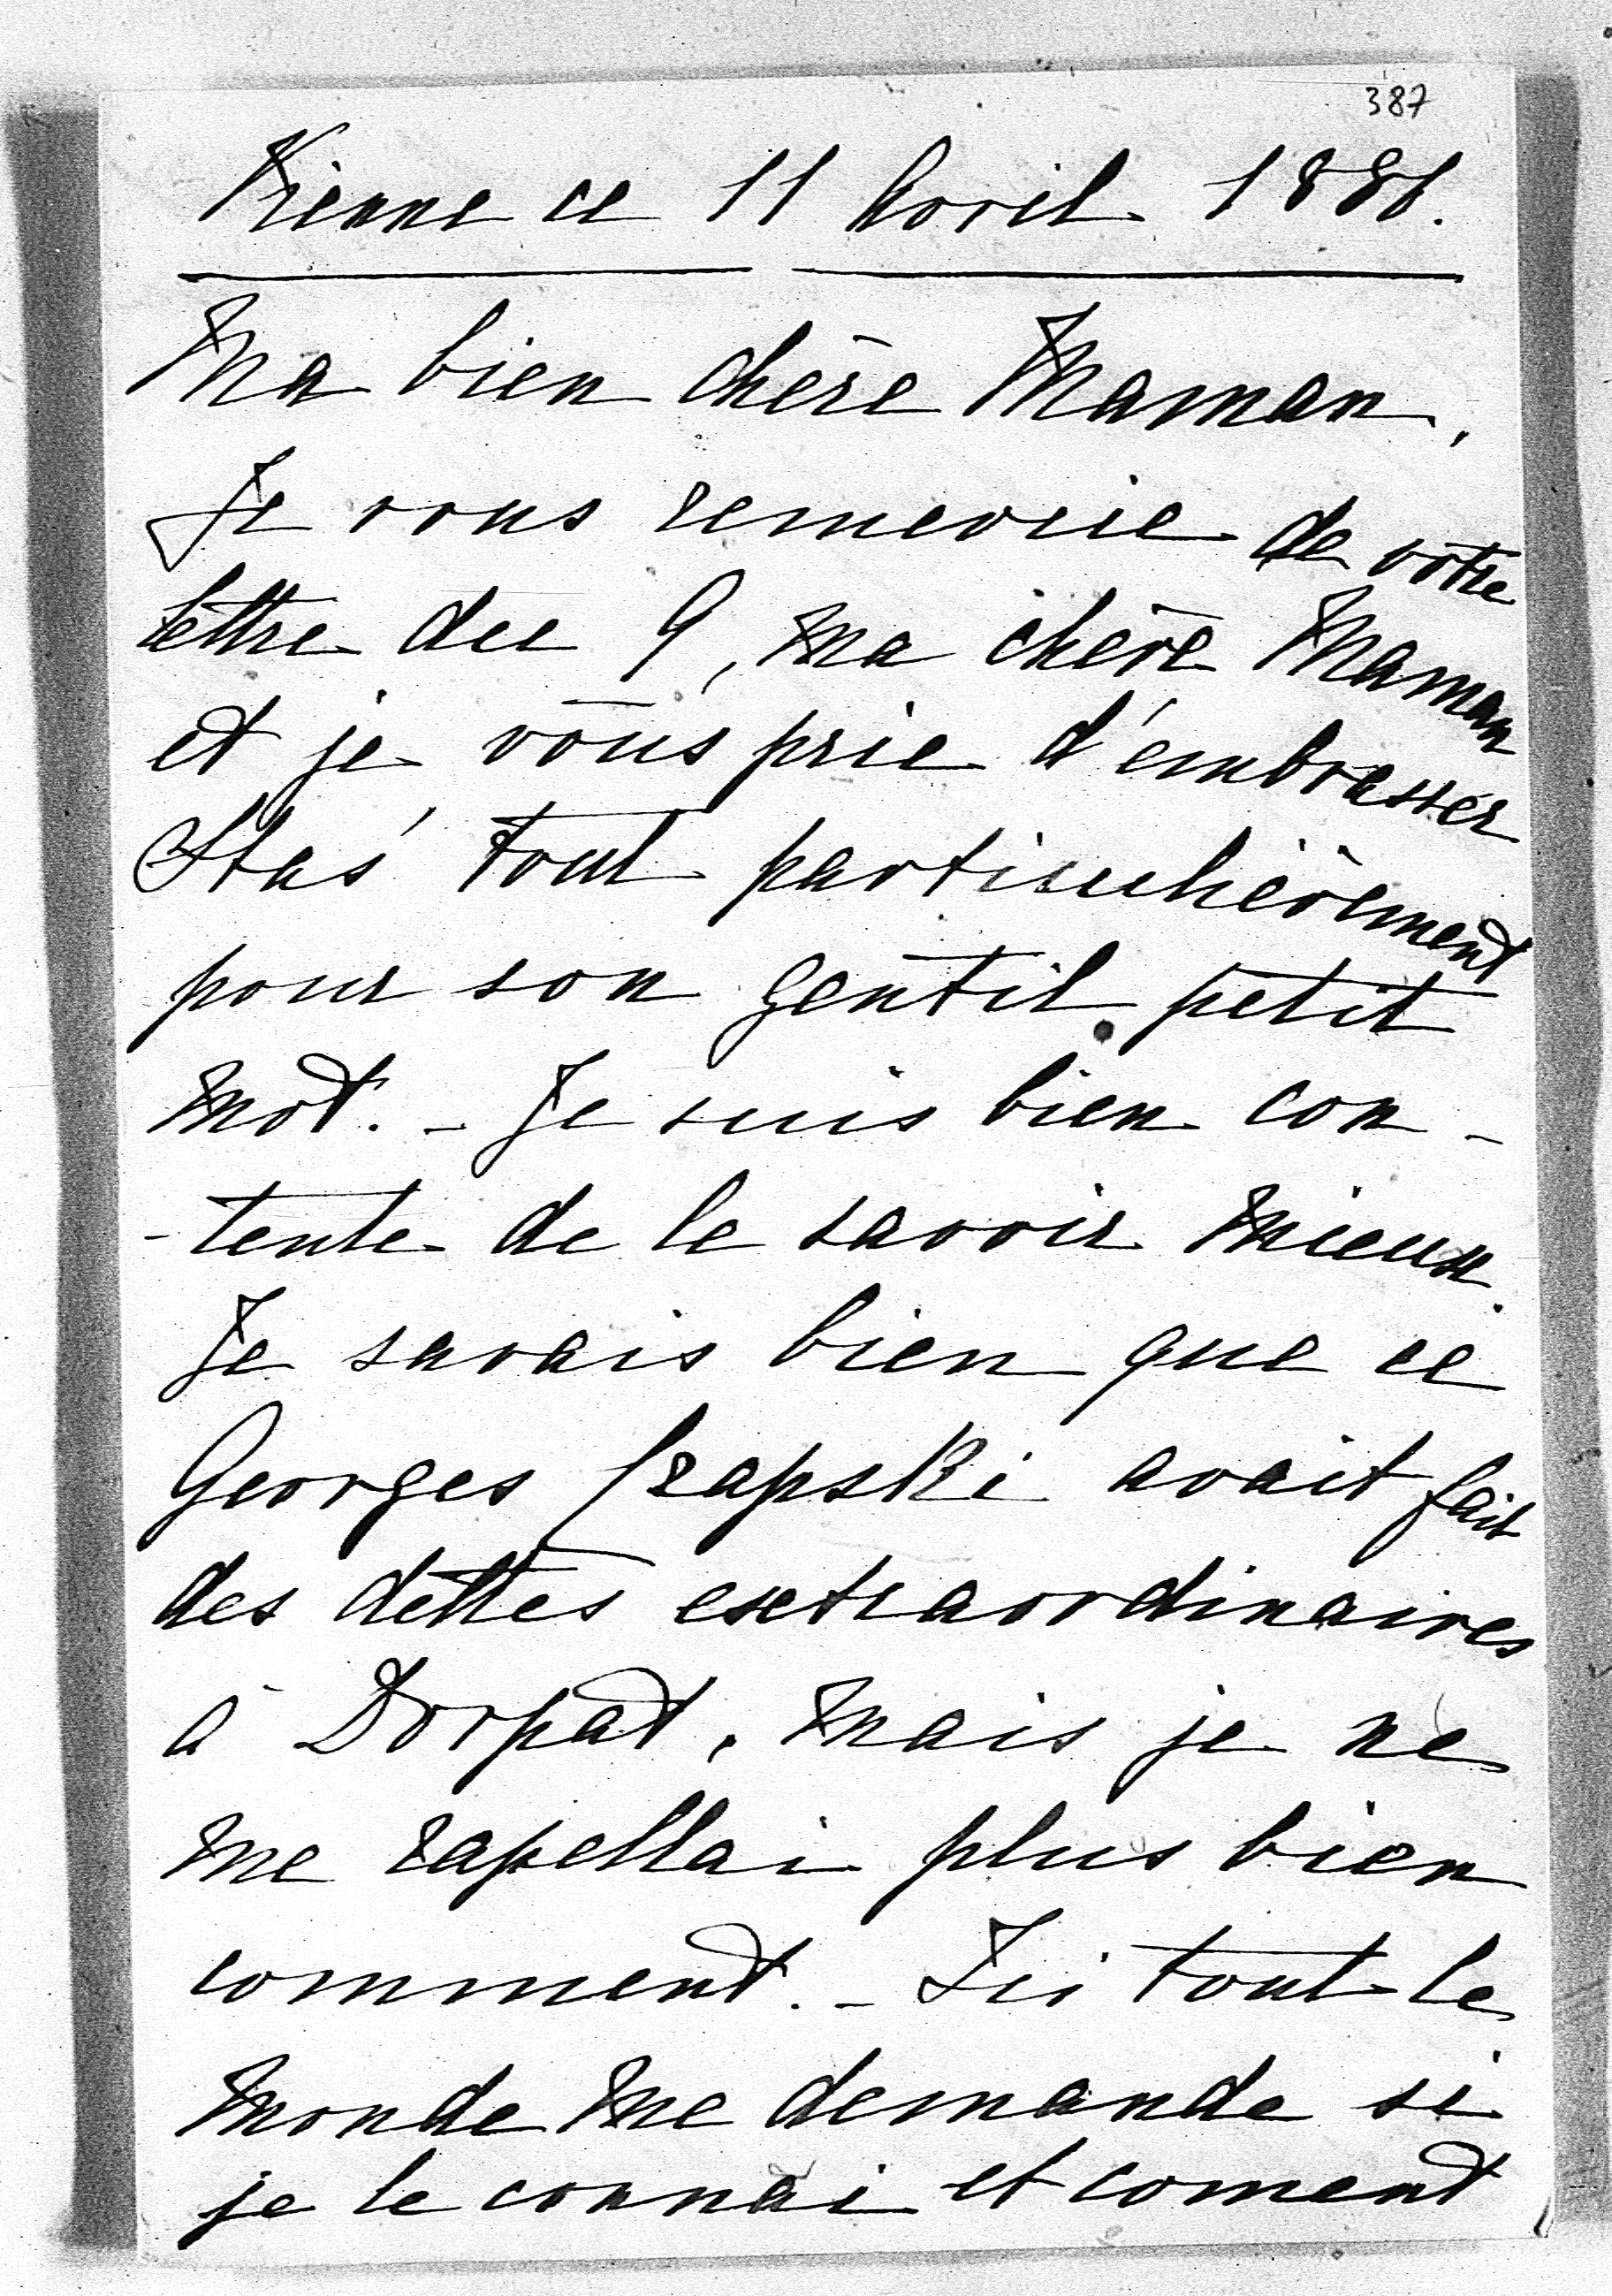 387
Vienne ce 11 Avril 1886.
Ma bien chère Maman,
Je vous remercie de votre
lettre du 9, ma chère Maman
et je vous prie d'embrasser
Staś tout particulièrement
pour son gentil petit
mot. - Je suis bien con-
-tente de le savoir mieux.
Je savais bien que ce
Georges Czapski avait fait
des dettes extraordinaires
à Dorpat, mais je ne
me rapellai plus bien
comment. - Ici tout le
monde me demande si
je le connai et coment